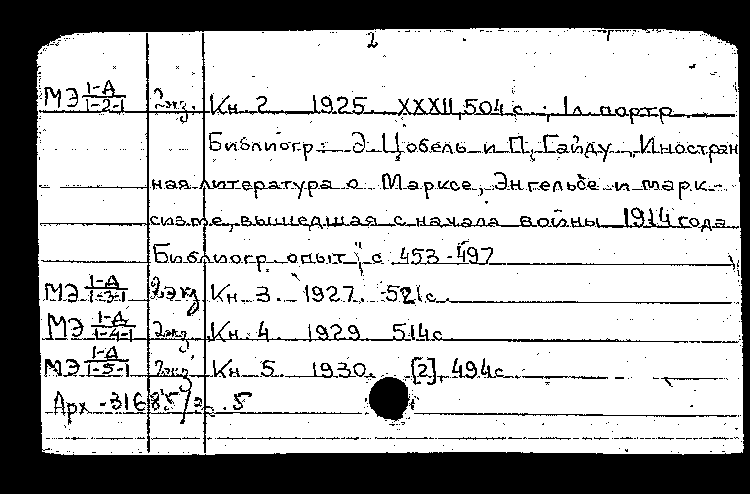 2
МЭ 1-Д/1-2-1 2экз. Кн. 2. 1925. XXXII, 504 с.; 1л. портр.
Библиогр.: Э. Цобель и П. Гайду „Иностран
ная литература о Марксе, Энгельсе и марк-
сизме, вышедшая с начала войны 1914 года.
Библиогр. опыт", с. 453-497
МЭ 1-Д/1-3-1 2экз Кн. 3. 1927. 521с.
МЭ 1-Д/1-4-1 2экз. Кн. 4. 1929. 514с.
МЭ 1-Д/1-5-1 2экз. Кн. 5. 1930. [2], 494с.
Арх - 31685/2-5